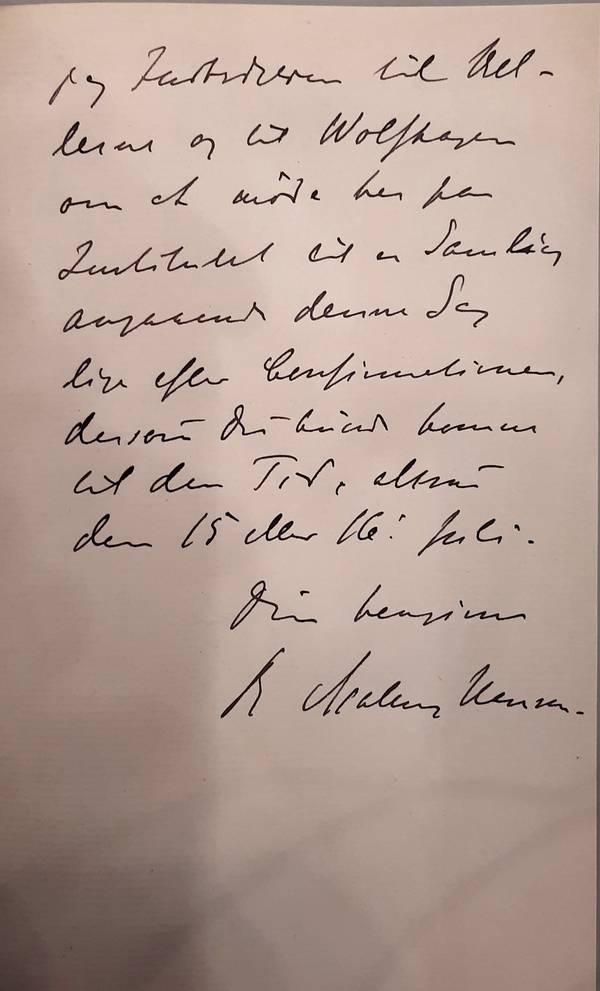 jeg Indbydelsen til Kel-
lerne og til Wolfhagen
om et Møde her paa
Institutet til en Samling
angaaende denne Sag
lige efter Confirmationen,
dersom Du kunde komme
til den Tid, altsaa
den 15 eller 16! Juli.
Din hengivne
R Malling Hansen.